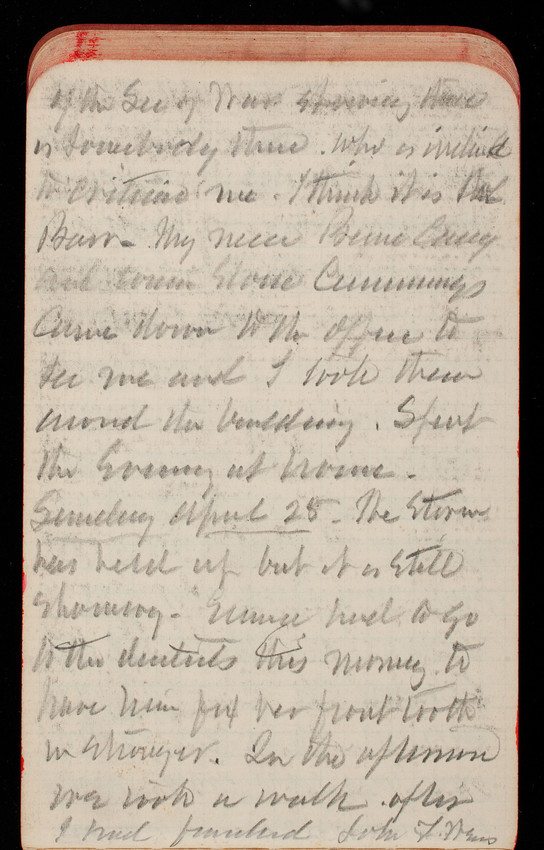 of the Sec of War showing there
is somebody there who is inclined
to criticise me. I think it is
Barr - My niece Bernie Casey
and cousin Cummings
came down to the office to
see me and I took them
around the building. Spent
the Evening at home.
Sunday April 28 - The storm
has held up but it is still
Showery - had to go
to the dentists this morning to
have him fix her front tooth
in stronger. In the afternoon
we took a walk after
I had finished